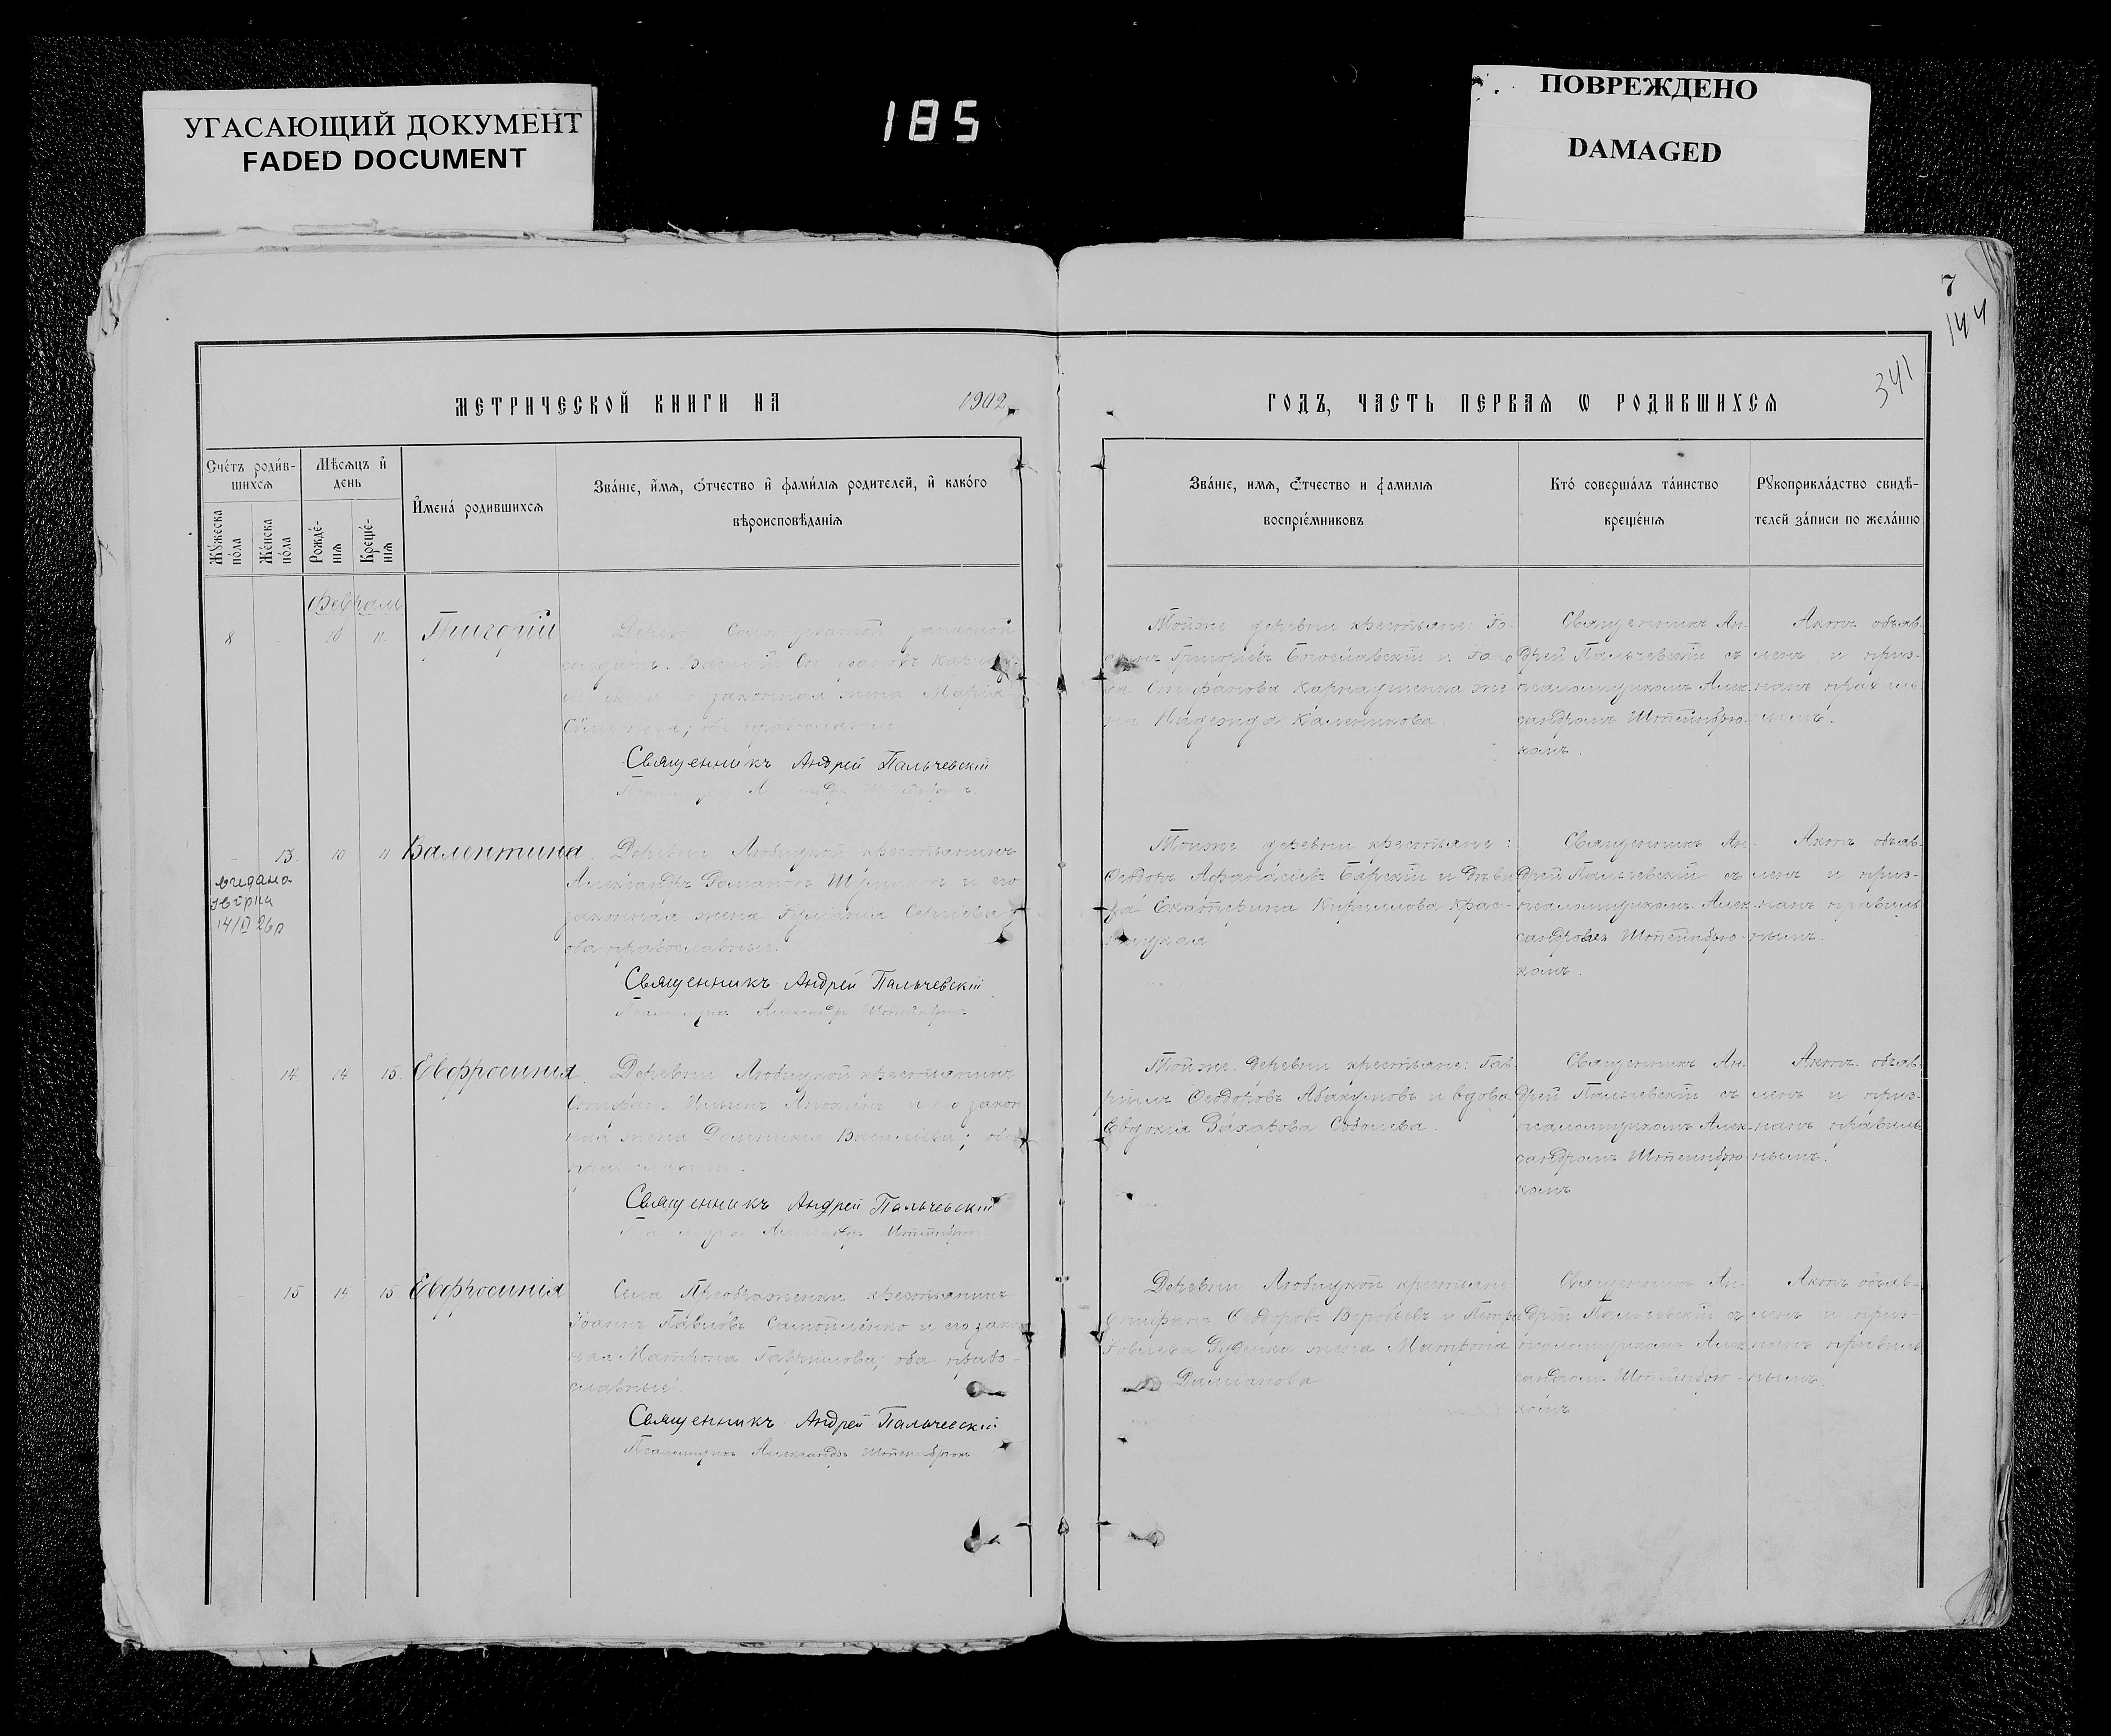 УГАСАЮЩИЙ ДОКУМЕНТ
FADED DOCUMENT
185
ПОВРЕЖДЕНО
DAMAGED
7
144
341
МЕТРИЧЕСКОЙ КНИГИ НА 1902
ГОДЪ, ЧАСТЬ ПЕРВАЯ Ѡ РОДИВШИХСЯ
Счетъ родив-
шихся
Мужеска
пола
Женска
пола
Мѣсяцъ и
день
Рожде-
нія
Креще-
нія
Имена родившихся
Званіе, имя, отчество и фамилія родителей, и какого
вѣроисповѣданія
Званіе, имя, отчество и фамилія
воспріемниковъ
Кто совершалъ таинство
крещенія
Рукоприкладство свидѣ-
телей записи по желанію
Февраль
8
10
11
Григорій
Деревни запасной
Василій
законная жена Марія
Священникъ Андрей Пальчевскій
Тойже деревни крестьяне:
Григоріевъ Богославскій и
Стефанова же-
на Надежда Калетникова.
Священникъ Ан-
дрей Пальчевскій съ
псаломщикомъ Алек-
сандромъ Штейнбрю-
комъ.
Актъ объяв-
ленъ и приз-
нанъ правиль-
нымъ.
13.
10
11
Валентина.
видана
звірка
14/XI 26р
Деревни Любицкой крестьянинъ
Александръ Романовъ и его
законная жена Сергіева;
оба православные.
Священникъ Андрей Пальчевскій
Псаломщикъ Александръ Штейнбрюкъ
Тойже деревни крестьяне:
Ѳеодоръ Аѳанасіевъ Барскій и дѣви-
ца Екатерина Кириллова
Священникъ Ан-
дрей Пальчевскій съ
псаломщикомъ Алек-
сандромъ Штейнбрю-
комъ.
Актъ объяв-
ленъ и приз-
нанъ правиль-
нымъ.
14
14
15.
Евфросинія.
Деревни Любицкой крестьянинъ
Стефанъ Ильинъ и его закон-
ная жена Домникія Василіева; оба
православные.
Священникъ Андрей Пальчевскій
Псаломщикъ Александръ Штейнбрюкъ
Тойже деревни крестьяне: Гав-
ріилъ Ѳеодоровъ Абакумовъ и вдова
Евдокія Захарова Соболева.
Священникъ Ан-
дрей Пальчевскій съ
псаломщикомъ Алек-
сандромъ Штейнбрю-
комъ
Актъ объяв-
ленъ и приз-
нанъ правиль-
нымъ.
15
14
15
Евфросинія
Села Преображенки крестьянинъ
Іоаннъ Павловъ Самойленко и его закон-
ная Матрона Гавриилова; оба право-
славные.
Священникъ Андрей Пальчевскій
Псаломщикъ Александръ Штейнбрюкъ
Деревни Любицкой крестьяне
Стефанъ Ѳеодоровъ Воробьевъ и Петра
Іовлева жена Матрона
Даміанова
Священникъ Ан-
дрей Пальчевскій съ
псаломщикомъ Алек-
сандромъ Штейнбрю-
комъ
Актъ объяв-
ленъ и приз-
нанъ правиль-
нымъ.